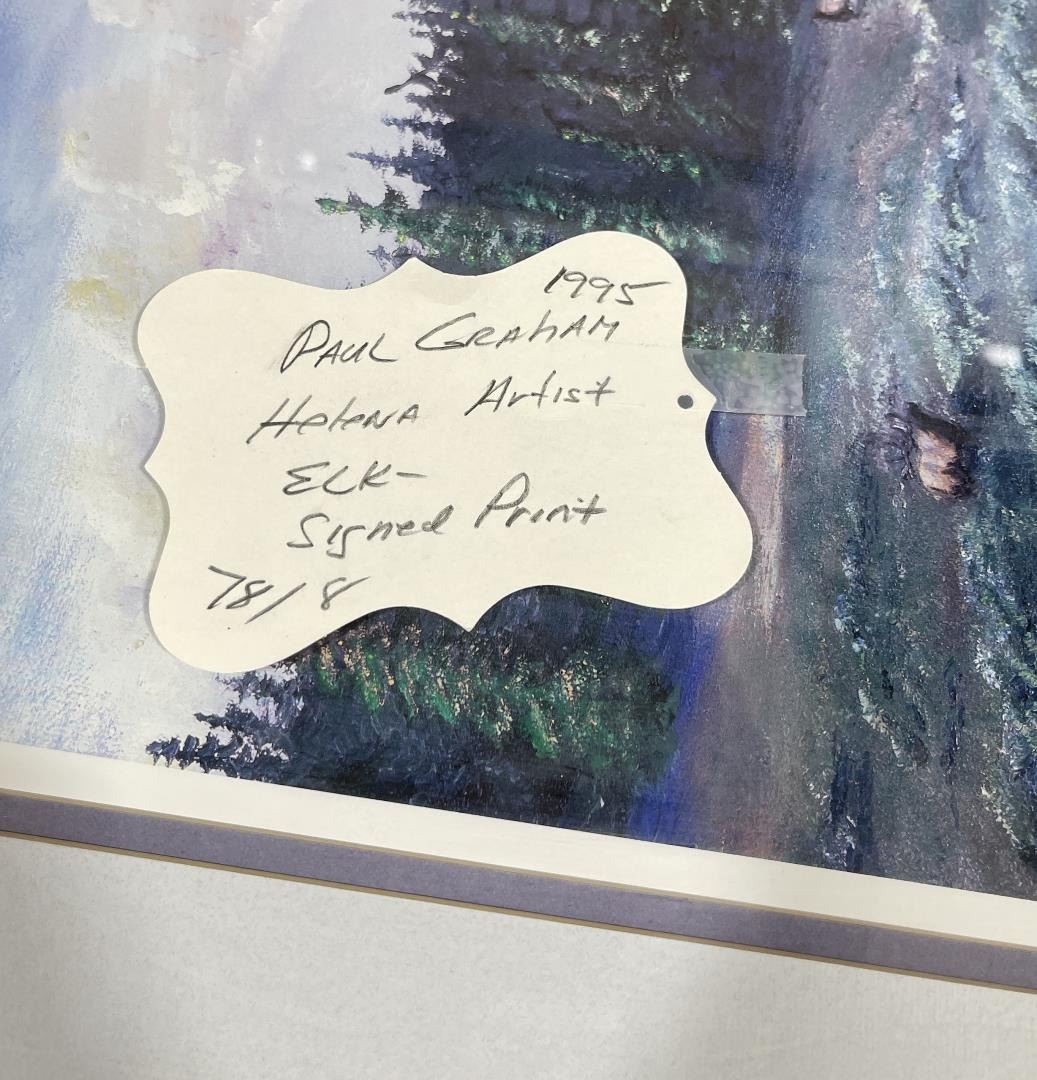 1995
PAUL GRAHAM
Helena Artist
ELK-
Signed Print
78/8